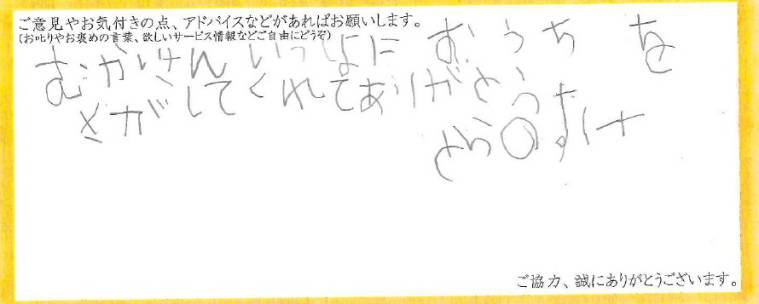 ご意見やお気付きの点、アドバイスなどがあればお願いします。
(お叱りやお褒めの言葉、欲しいサービス情報などご自由にどうぞ)
むかいけん いっしょに おうち を
さがしてくれてありがとう
とら〇すけ
ご協力、誠にありがとうございます。